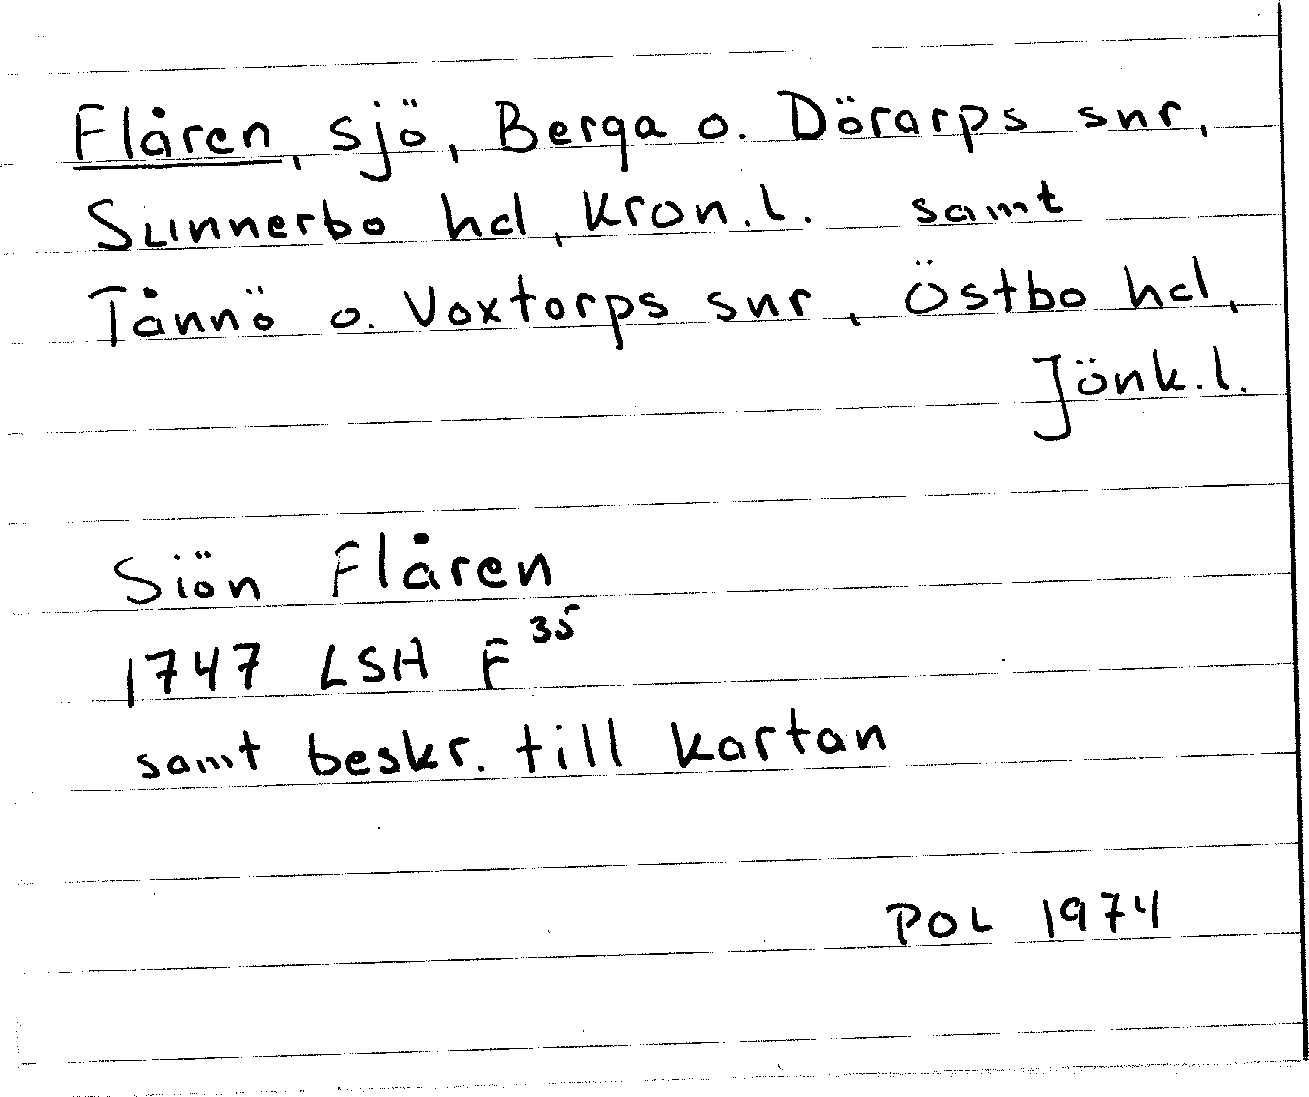 Flåren, sjö, Berga o. Dörarps snr,
Sunnerbo hd, Kron.l. samt
Tånnö o. Voxtorps snr, Östbo hd,
Jönk.l.
Siön Flåren
1747 LSH F³⁵
samt beskr. till kartan
POL 1974